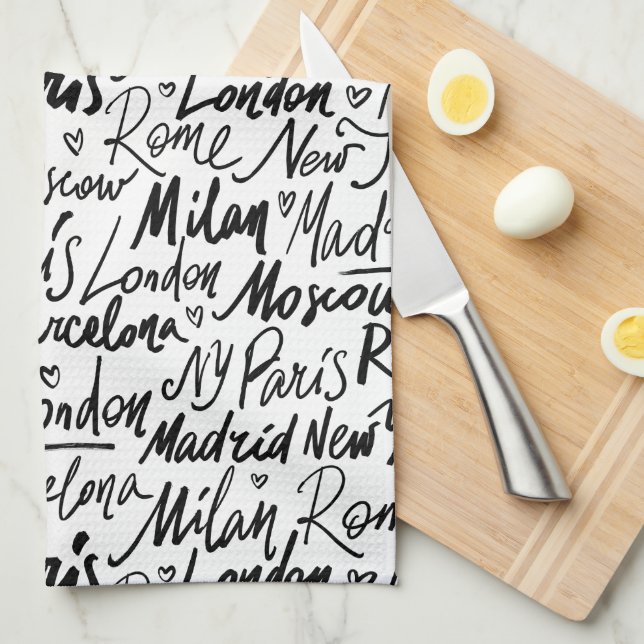 ris London
Rome New
scow
Milan Mad
is London Moscow
rcelona
NY Paris R
ondon
Madrid New Y
elona
Milan Rom
ris London